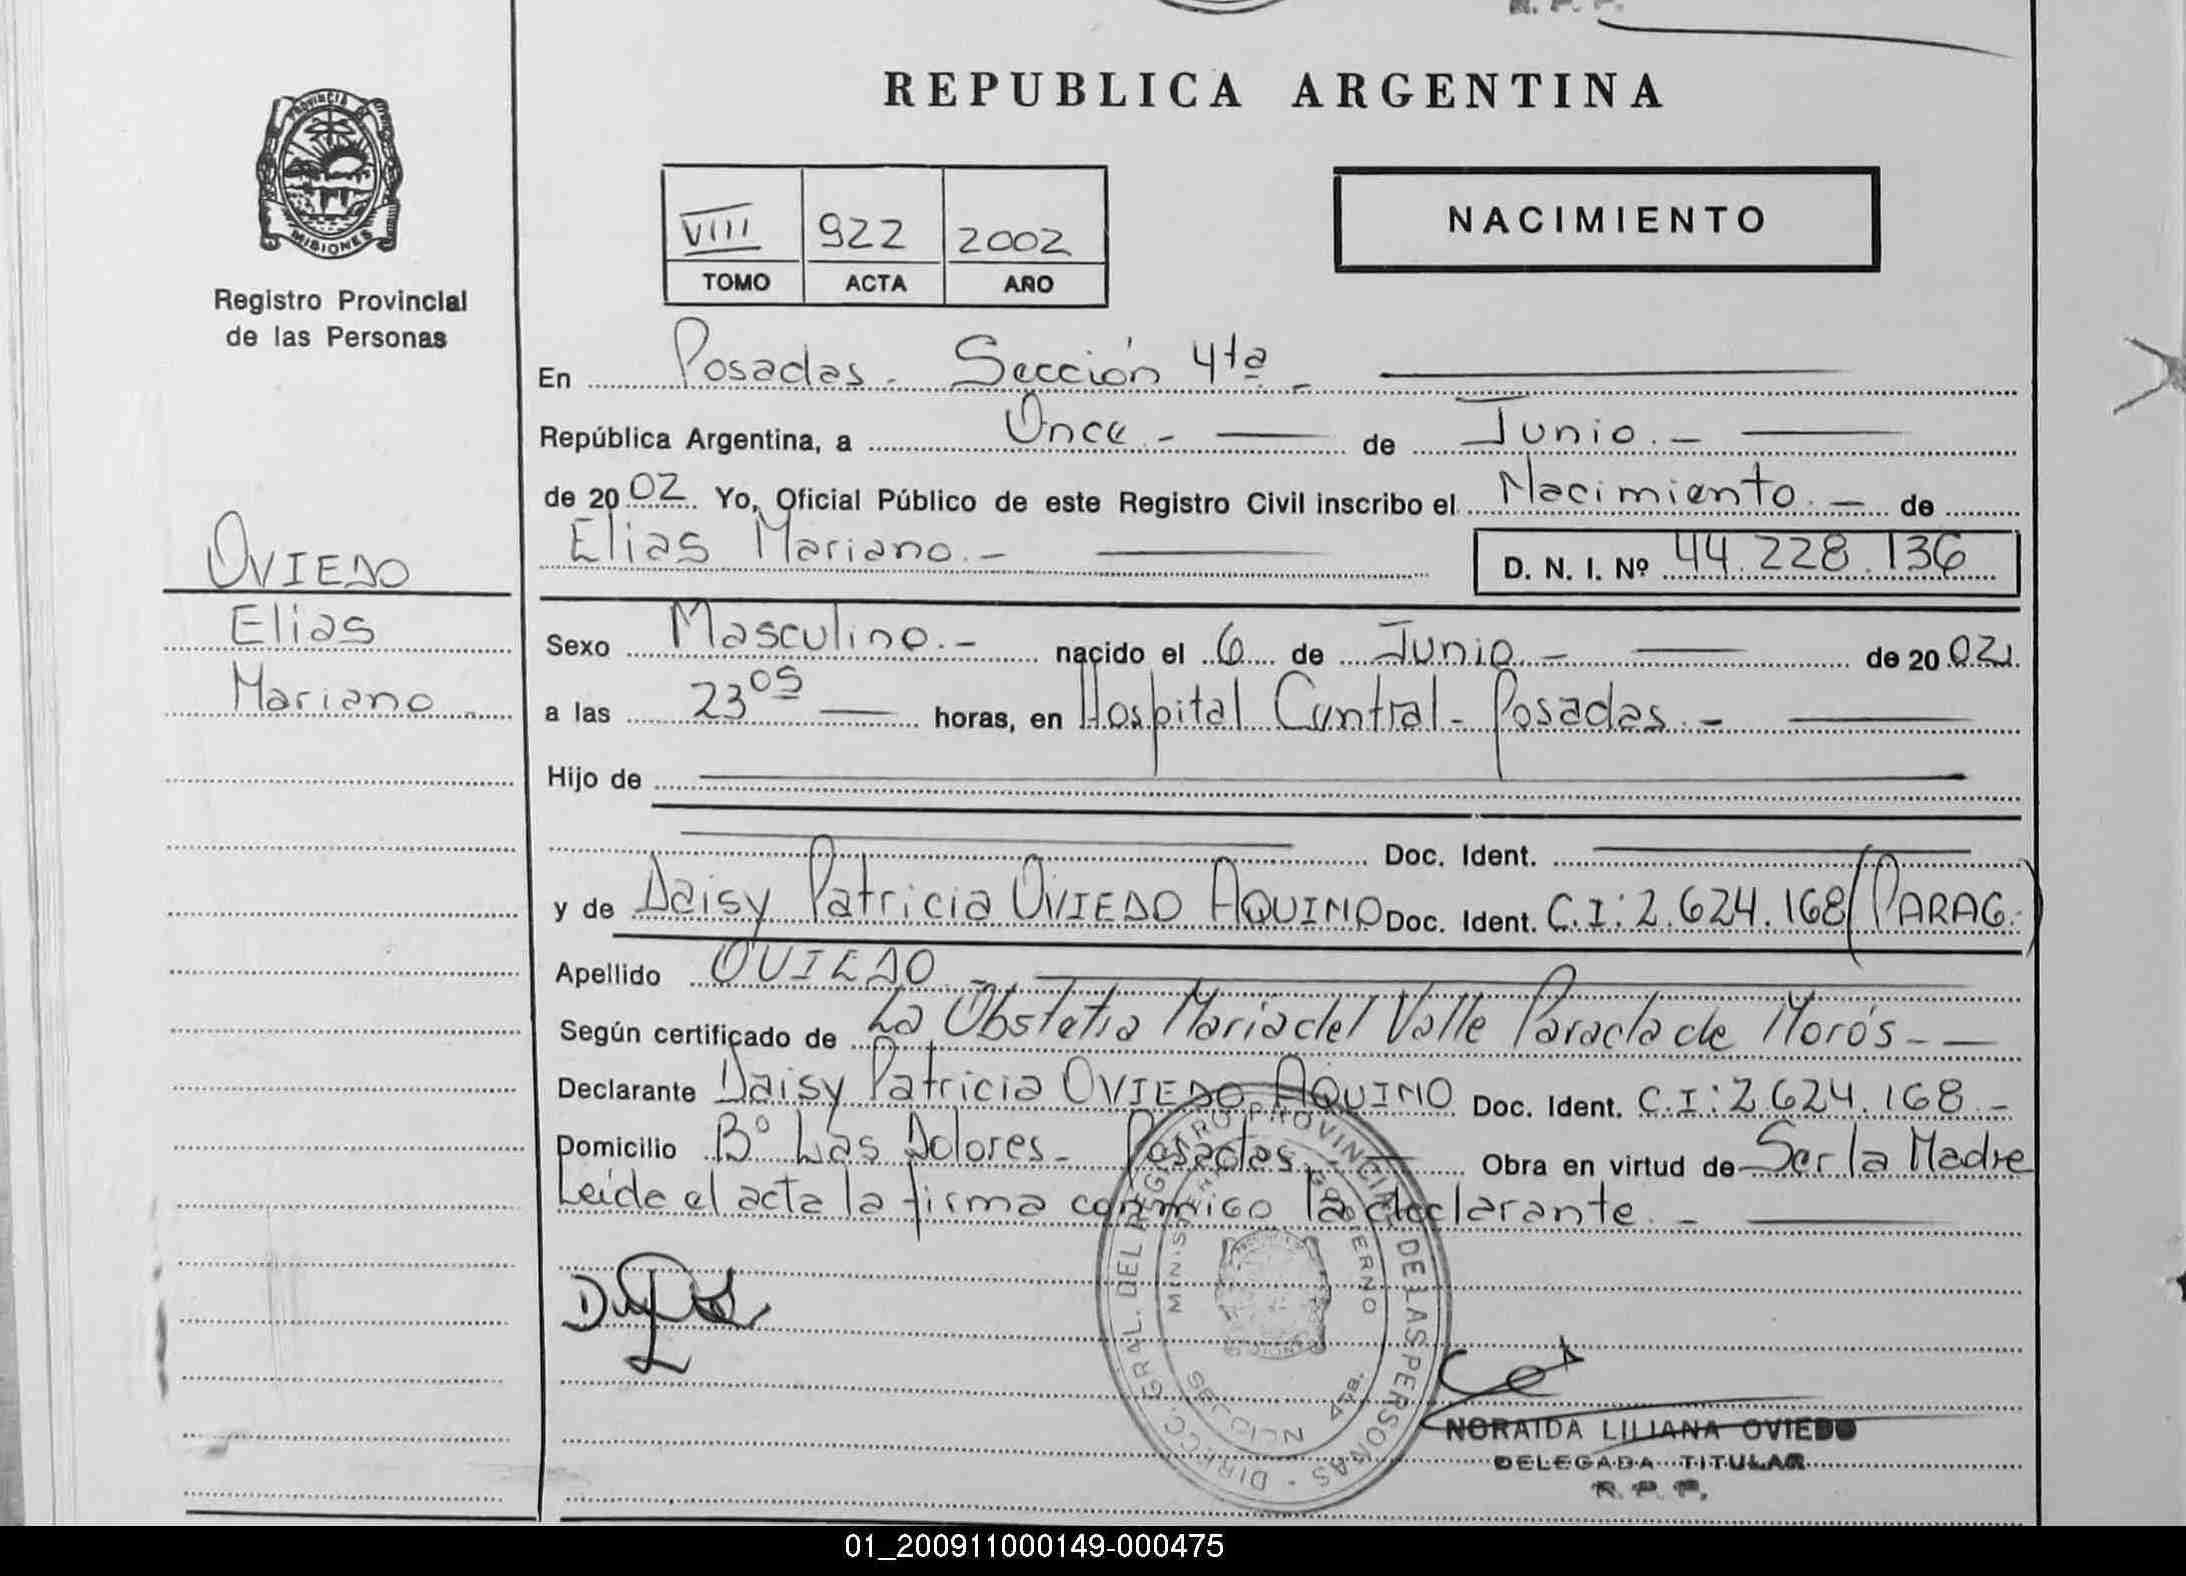 R. P. P.
REPUBLICA ARGENTINA
PROVINCIA DE
MISIONES
Registro Provincial
de las Personas
VIII 922 2002
TOMO ACTA AÑO
NACIMIENTO
En Posadas - Sección 4ta -
República Argentina, a Once - de Junio. -
de 2002 Yo, Oficial Público de este Registro Civil inscribo el Nacimiento. - de
Elias Mariano. -
D. N. I. Nº 44.228.136
OVIEDO
Elias
Mariano
Sexo Masculino. - nacido el 6 de Junio - de 2002
a las 23 05 horas, en Hospital Central - Posadas. -
Hijo de
Doc. Ident.
y de Daisy Patricia OVIEDO AQUINO Doc. Ident. C.I: 2.624.168 (PARAG.)
Apellido OVIEDO -
Según certificado de La Obstetra Maria del Valle Parada de Morós -
Declarante Daisy Patricia OVIEDO AQUINO Doc. Ident. C.I: 2.624.168 -
Domicilio Bº Las Dolores - Posadas - Obra en virtud de Ser la Madre
Leída el acta la firma conmigo la declarante. -
DIRECC. GRAL. DEL REGISTRO PROVINCIAL DE LAS PERSONAS
MINISTERIO GOBIERNO
4ta.
NORAIDA LILIANA OVIEDO
DELEGADA TITULAR
R. P. P.
01_200911000149-000475